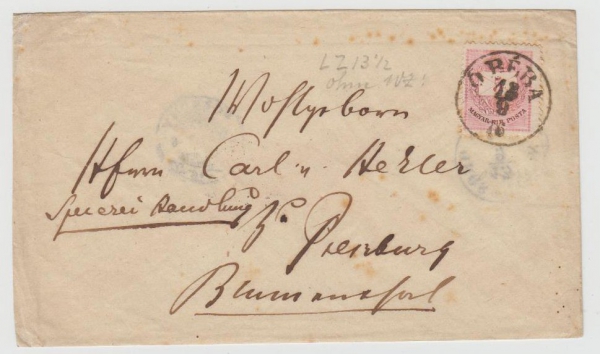 LZ 13 1/2
ohne WZ!
Ó BÉBA
13
9
76
MAGYAR KIR. POSTA
Wohlgeborn
Herrn Carl v. Hekler
Specerei Handlung
Zu Pressburg
Blumenthal